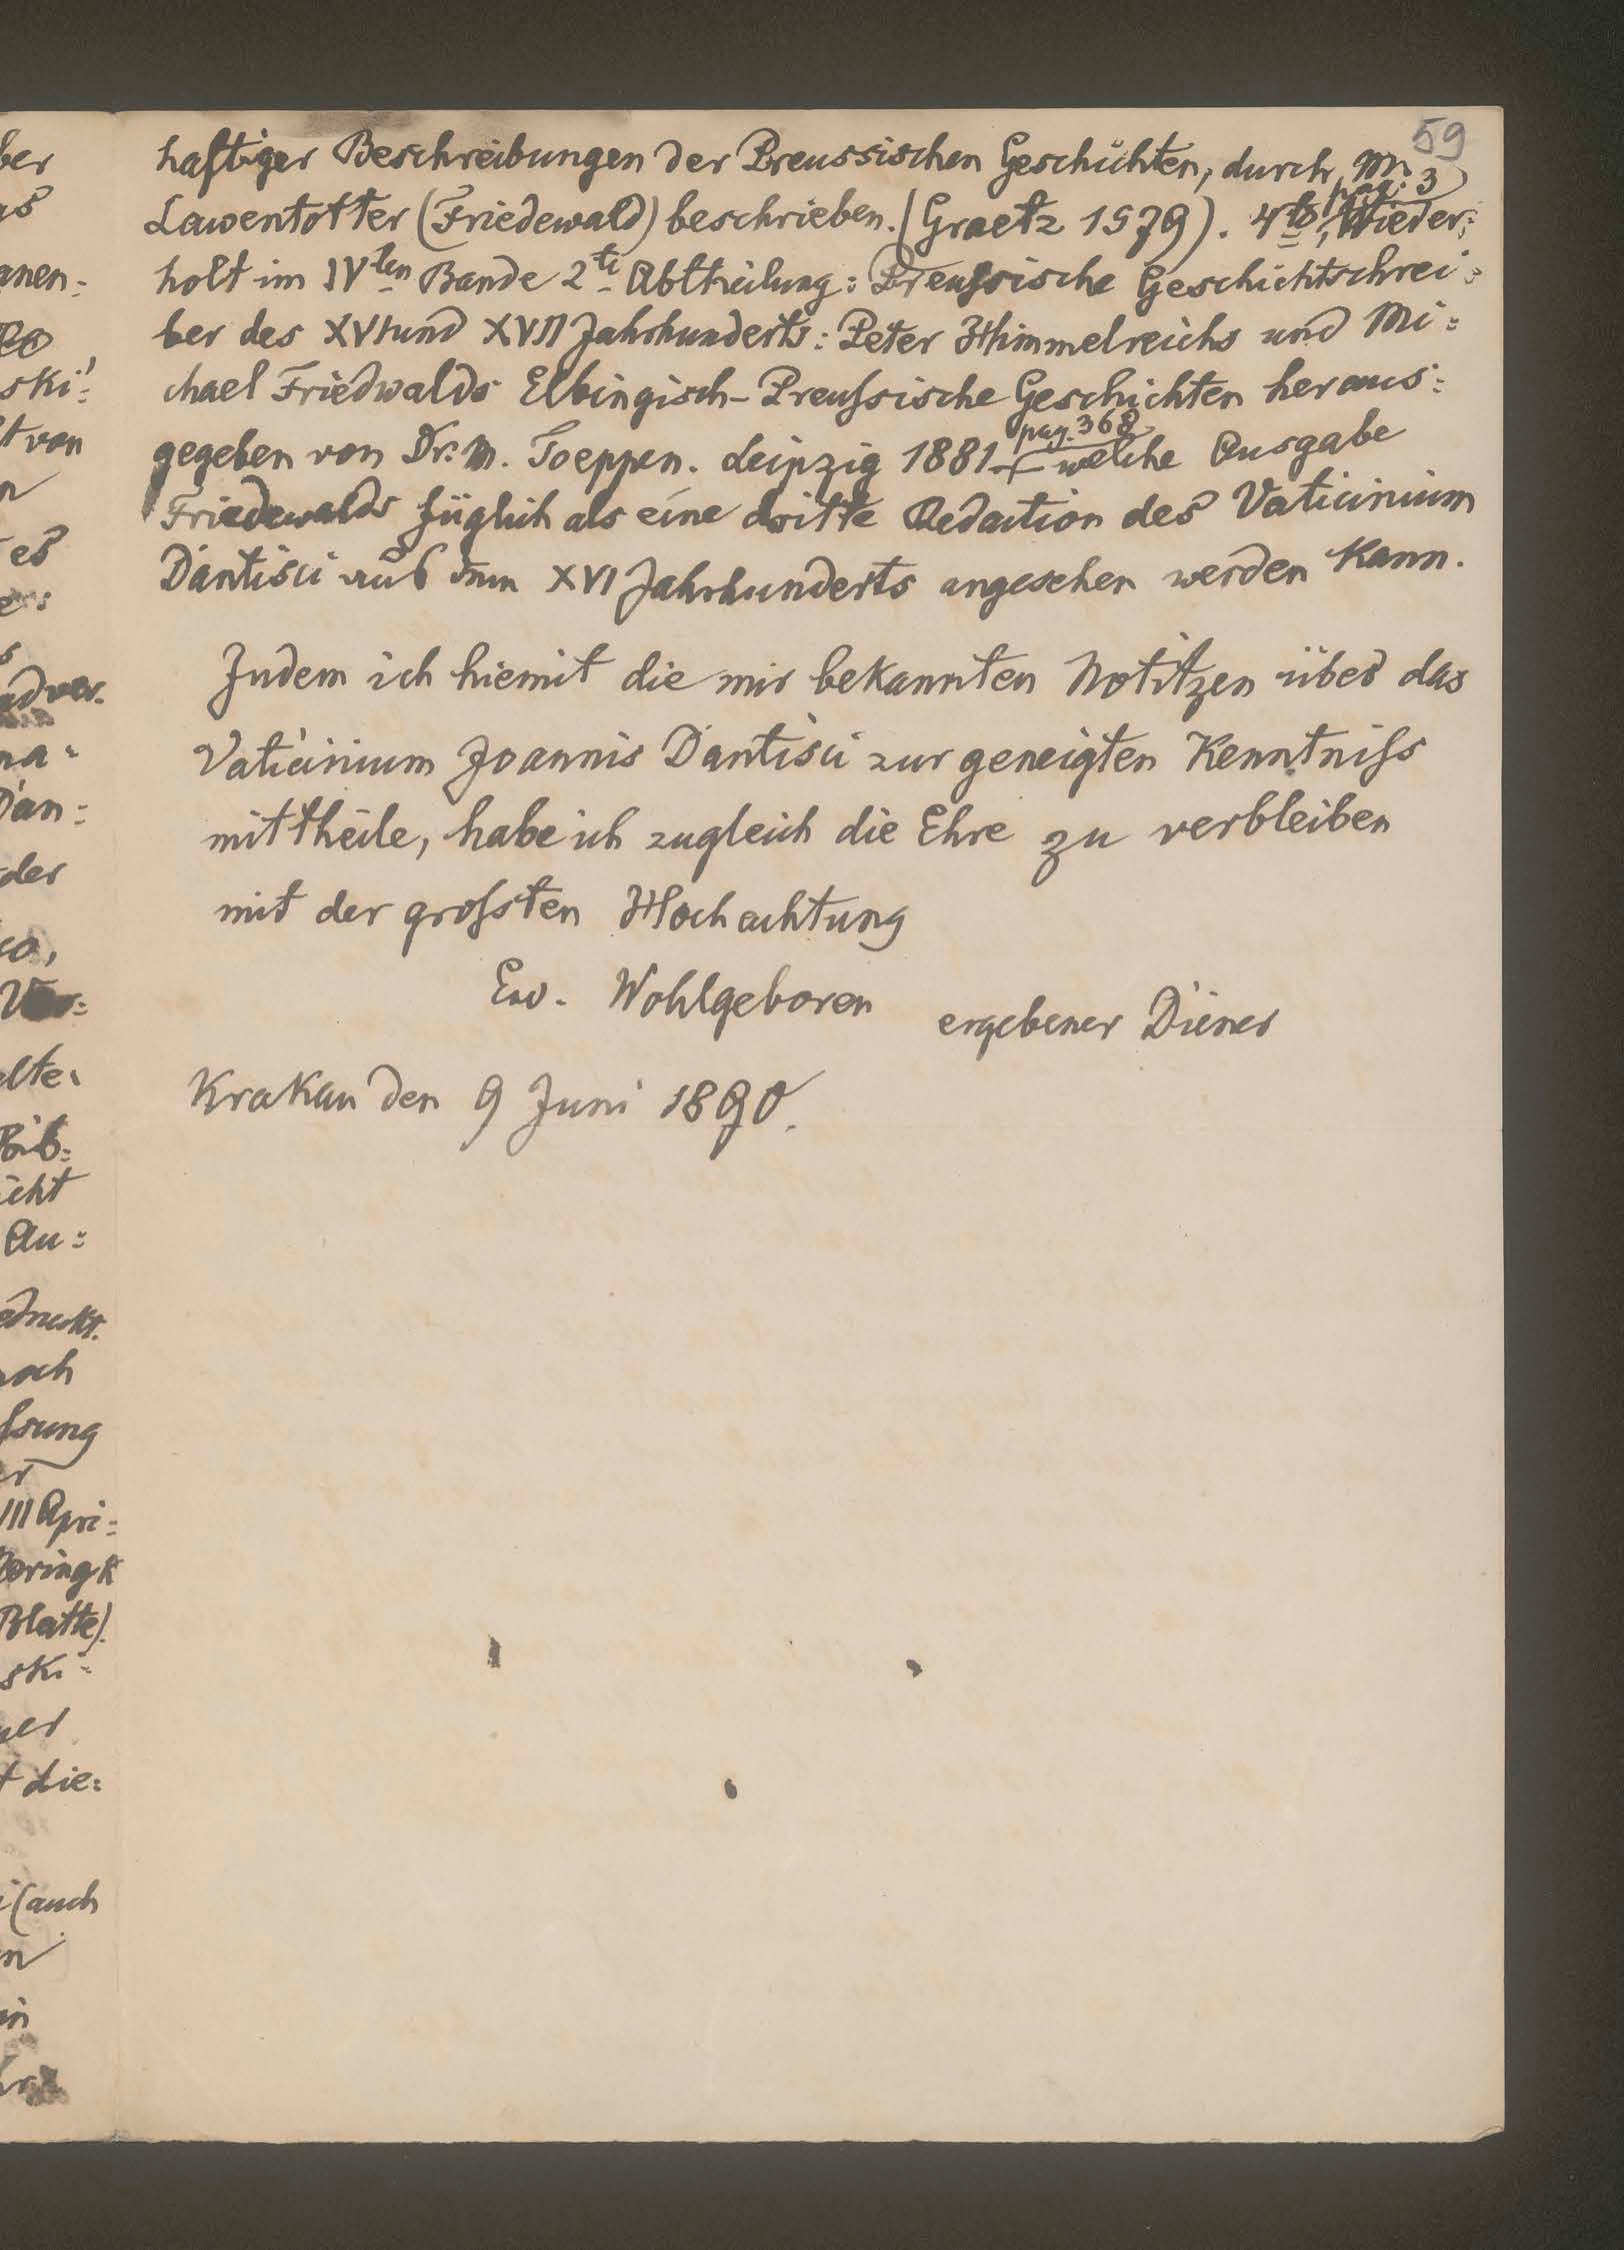 59
haftiger Beschreibungen der Preussischen Geschichten, durch M.
pag: 3
Lawentotter (Friedewald) beschrieben. (Graetz 1579). 4to, Wieder:
holt im IVten Bande 2te Abtheilung: Preussische Geschichtschrei:
ber des XVI und XVII Jahrhunderts: Peter Himmelreichs und Mi:
chael Friedwalds Elbingisch-Preussische Geschichten heraus:
pag. 368
gegeben von Dr. M. Toeppen. Leipzig 1881 welche Ausgabe
Friedewalds füglich als eine dritte Redaction des Vaticinium
Dantisci aus dem XVI Jahrhunderts angesehen werden kann.
Indem ich hiemit die mir bekannten Notitzen über das
Vaticinium Joannis Dantisci zur geneigten Kenntniss
mittheile, habe ich zugleich die Ehre zu verbleiben
mit der grossten Hochachtung
Ew. Wohlgeboren
ergebener Diener
Krakau den 9 Juni 1890.
ber
as
anen:
ski:
t von
es
adver.
na:
Dan:
der
co,
Ver:
lte
Bib:
icht
Au:
edruckt.
noch
ssung
er
III Apri:
eringk
Blatte).
ski:
ner
t die:
(auch
in